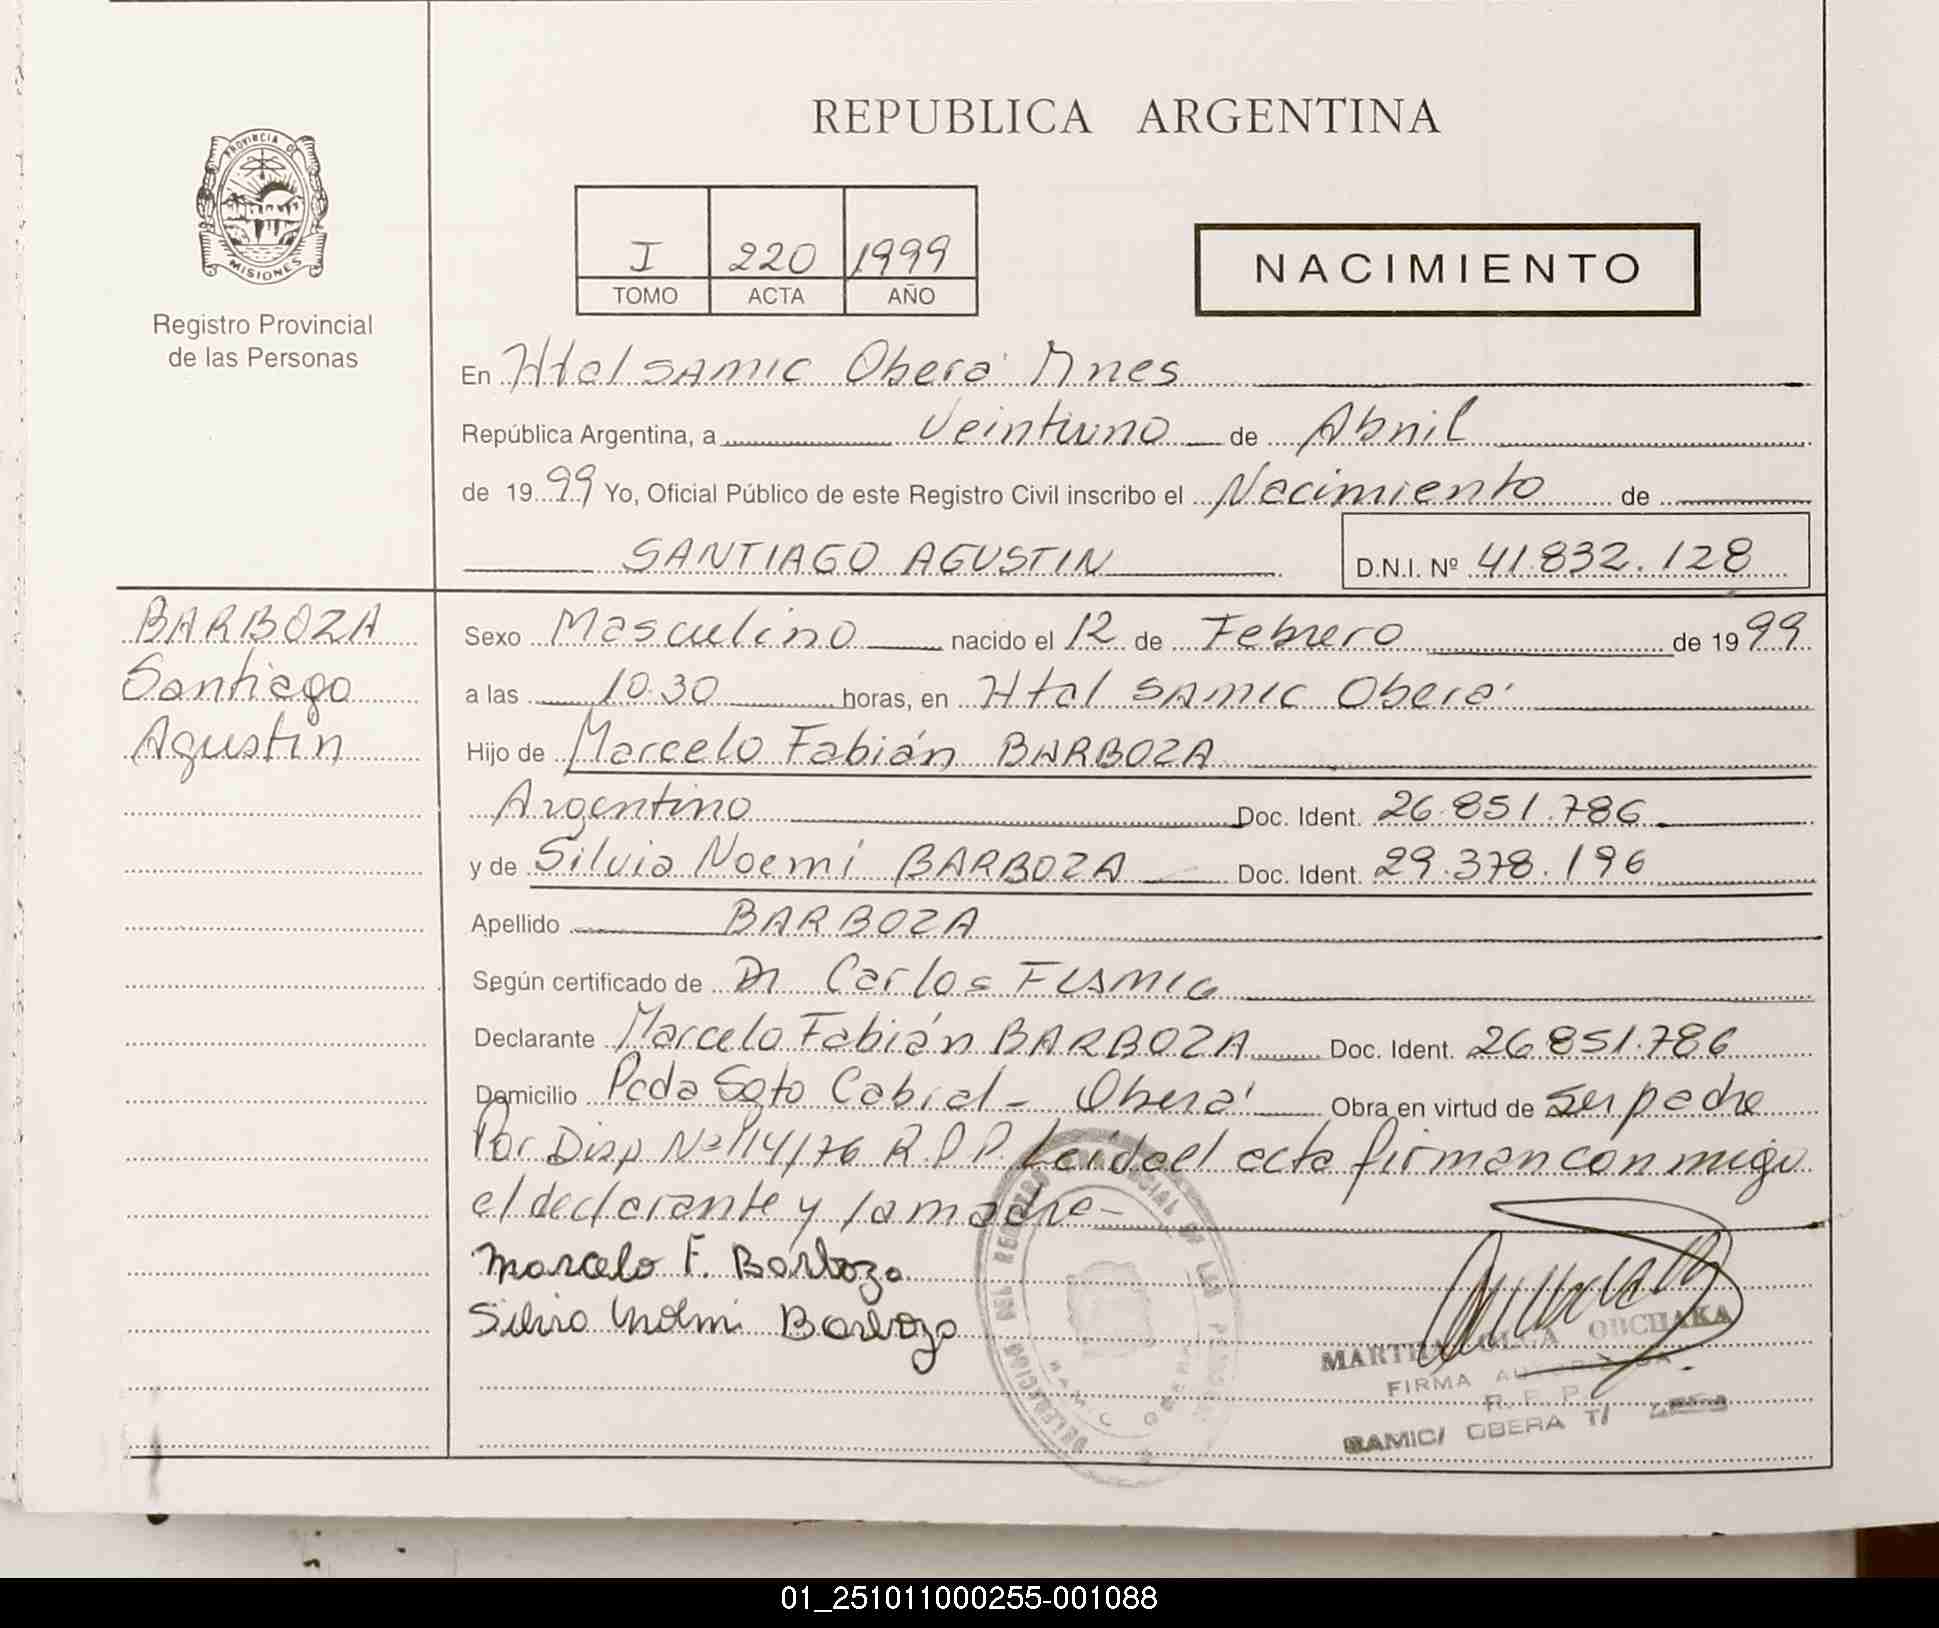 REPUBLICA ARGENTINA
PROVINCIA D
MISIONES
Registro Provincial
de las Personas
I 220 1999
TOMO ACTA AÑO
NACIMIENTO
En Htal SAMIC Oberá Mnes
República Argentina, a Veintiuno de Abril
de 1999 Yo, Oficial Público de este Registro Civil inscribo el Nacimiento de
SANTIAGO AGUSTIN D.N.I. Nº 41.832.128
BARBOZA
Santiago
Agustin
Sexo Masculino nacido el 12 de Febrero de 1999
a las 10.30 horas, en Htal SAMIC Oberá
Hijo de Marcelo Fabián BARBOZA
Argentino Doc. Ident. 26.851.786
y de Silvia Noemí BARBOZA Doc. Ident. 29.378.196
Apellido BARBOZA
Según certificado de Dr Carlos
Declarante Marcelo Fabián BARBOZA Doc. Ident. 26851.786
Domicilio Pcda Soto Cabral - Oberá Obra en virtud de ser padre
Por Disp Nº 114/76 R.P.P. Leida el acta firman conmigo
el declarante y la madre-
Marcelo F. Barboza
Silvia Noemi Barboza
DELEGACION DEL REGISTRO PROVINCIAL DE LAS
SAMIC OBERA
MARTHA OLGA OBCHAKA
FIRMA AUTORIZADA
R. P. P.
SAMIC/ OBERA T/
01_251011000255-001088